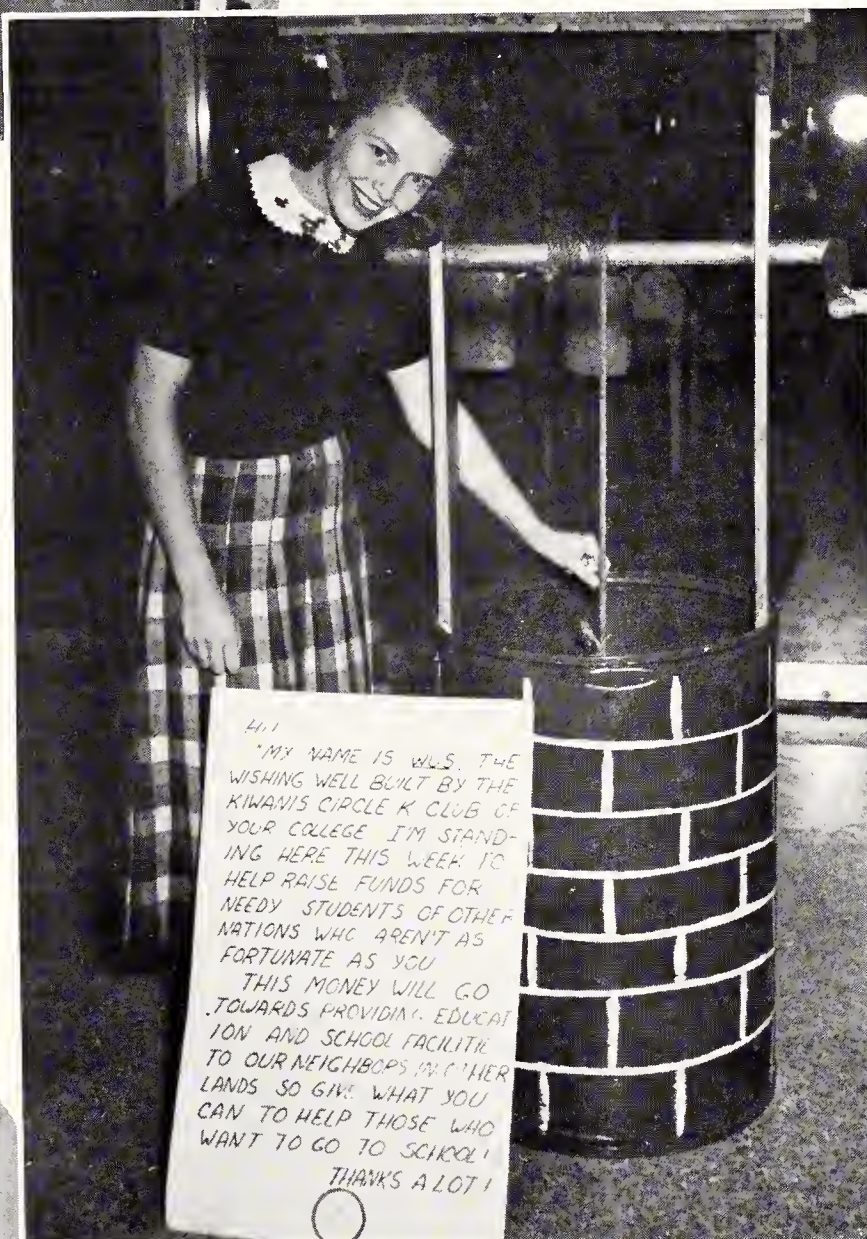 HI!
"MY NAME IS W.U.S. THE
WISHING WELL BUILT BY THE
KIWANIS CIRCLE K CLUB OF
YOUR COLLEGE I'M STAND-
ING HERE THIS WEEK TO
HELP RAISE FUNDS FOR
NEEDY STUDENTS OF OTHER
NATIONS WHO AREN'T AS
FORTUNATE AS YOU
THIS MONEY WILL GO
TOWARDS PROVIDING EDUCAT
ION AND SCHOOL FACILITIE
TO OUR NEIGHBORS IN OTHER
LANDS SO GIVE WHAT YOU
CAN TO HELP THOSE WHO
WANT TO GO TO SCHOOL!
THANKS A LOT!